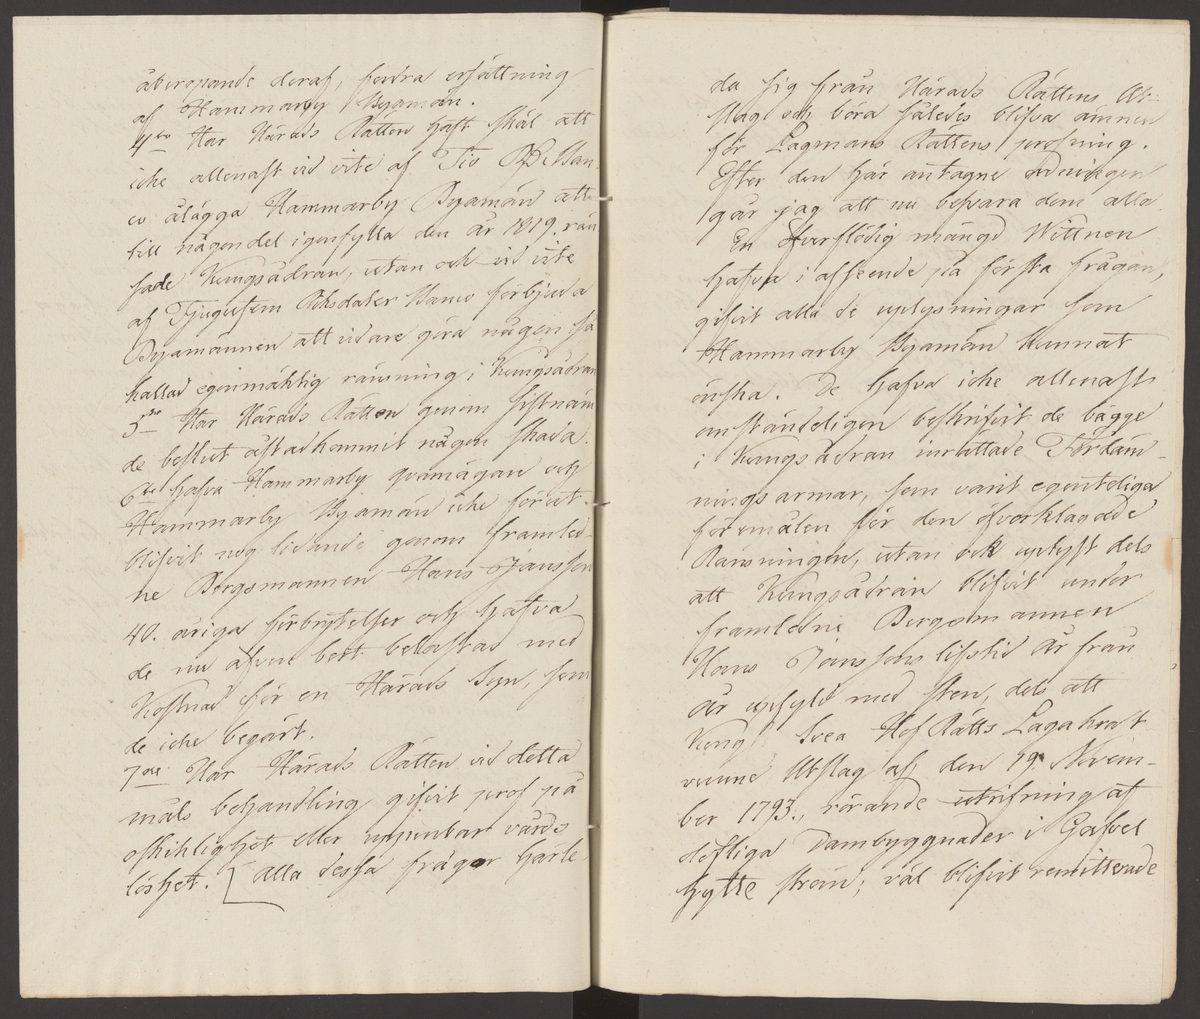 åberopande deraf, fordra ersättning
af Hammarby Byamän.
4to Har Härads Rätten haft skäl att
icke allenast vid vite af Tio RD Ban-
co ålägga Hammarby Byamän att
till någon del igenfylla den år 1819. rän-
sade Kungsådran, utan och vid vite
af Tjugufem Riksdaler Banco förbjuda
Byamännen att vidare göra någon så
kallad egenmäktig ränsning i Kungsådran
5to Har Härads Rätten genom sistnäm
de beslut åstadkommit någon skada.
6te hafva Hammarby qvarnägare och
Hammarby Byamän icke förut
blifvit nog lidande genom framled-
ne Bergsmannen Hans Jansson
40. åriga förbrytelser och hafva
de nu äfven bort belastas med
Kostnad för en Härads Syn, som
de icke begärt.
7de Har Härads Rätten vid detta
måls behandling gifvit prof på
oskicklighet eller uppenbar vårds-
löshet. Alla dessa frågor härle-
da sig från Härads Rättens Ut-
slag och böra således blifva ämnen
för Lagmans Rättens profning.
Efter den här antagne ordningen
går jag att nu besvara dem alla.
En öfverflödig mängd Wittnen
hafva i afseende på första frågan,
gifvit alla de uplysningar som
Hammarby Byamän kunnat
önska. De hafva icke allenast
omständeligen beskrifvit de bägge
i Kungsådran inrättade Fördäm-
ningsarmar, som varit egenteliga
föremålen för den öfverklagade
Ränsningen, utan ock uplyst dels
att Kungsådran blifvit under
framledne Bergsmannen
Hans Janssons lifstid år från
år upfyld med sten, dels att
Kongl Svea Hof Rätts Laga kraft
vunne Utslag af den 19 Novem-
ber 1793., rörande utrifning af
doftliga Dambyggnader i Gafvel
hytte ström; väl blifvit remitterade